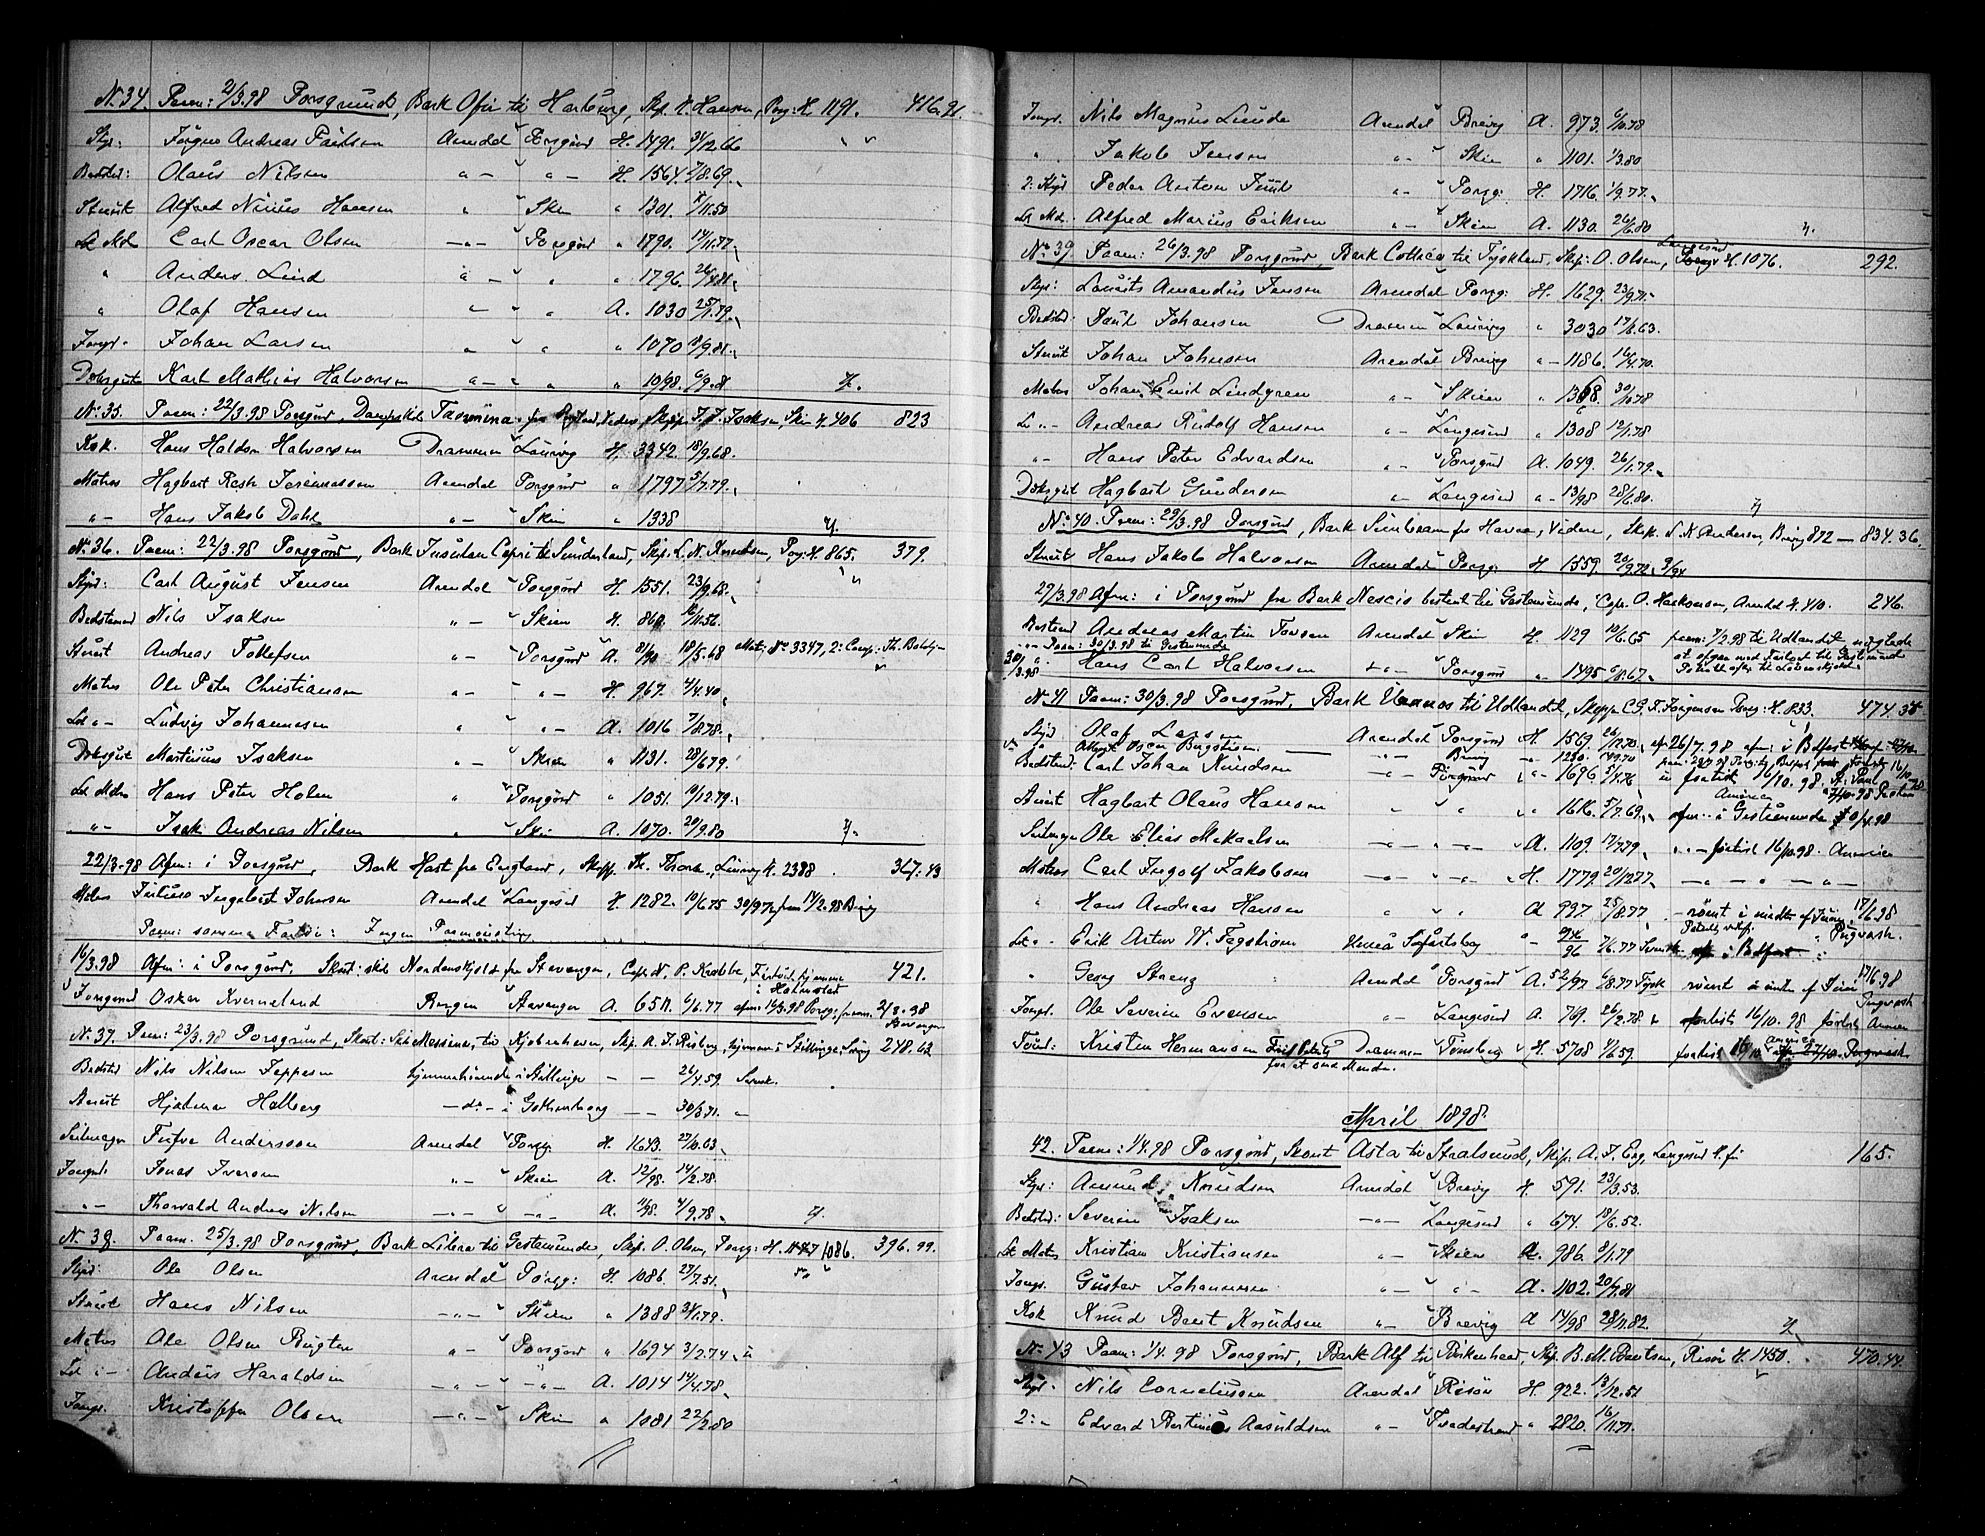 No 34. Paam: 21/3.98 Porsgrund, Bark Ofir til Harburg, Skp. H. Hansen, Porsg: H. 1191. 416.91.
Styr: Jørgen Andreas Paulsen Arendal Porsgrund H. 1491. 31/12.66
Bedstd: Olaus Nilsen " - " - H. 1564. 7/8.69.
Stuert Alfred Nicius Hansen " Skien " 1301. 8/11.50
Let Md Carl Oscar Olsen - " - Porsgrund " 1790. 14/11.77.
" Anders Lind " - " " 1796. 26/4.81.
" Olaf Hansen " - " A. 1030 25/1.79.
Jongd. Johan Larsen " " " 1070 18/9.81.
Dæksgut Karl Mathias Halvorsen " - " " 10/98. 6/9.81
No 35. Paam: 22/3.98 Porsgrund, Dampskib Taormina fra England, videre, Skipp. J. J. Isaksen, Skien H. 406 823
Kok. Hans Haldor Halvorsen Drammen Laurvig H. 3342. 18/9.68.
Matros Hagbart Resh Jeremiassen Arendal Porsgrund " 1797 5/7.79.
" - Hans Jakob Dahl " - Skien " 1338
No 36. Paam: 22/3.98 Porsgrund, Bark Insulan Capri til Sunderland, Skip. L. N. Knudsen, Porsg: H. 865. 379.
Styrd: Carl August Jensen Arendal Porsgrund H. 1551. 23/9.68.
Bedstemand Nils Isaksen " - Skien H. 860. 16/11.56.
Stuert Andreas Tollefsen " - Porsgrund A. 81/90 18/5.68 Mat: No 3347, 2: Comp: Th. Batalj-
Matros Ole Peter Christiansen " - " - H. 967. 4/4.40,
Let " - Ludvig Johannesen " " A. 1016 7/8.78.
Dæksgut Martinius Isaksen " - Skien " 1131. 28/6.79.
Let Matros Hans Peter Holm " Porsgrund " 1051. 10/12.79.
" - Isak Andreas Nilsen " Skien A. 1070. 20/9.80
22/3.98 Afm: i Porsgrund, Bark Høst fra England, Skipp. Th. Thorsen, Laurvig H. 2388. 367.43
Matros Julius Ingebart Johnsen Arendal Langesund H. 1282. 10/6.75 30/97 paam 17/2.98 Brevig
Paam: samme Fartøi: Ingen Paamønstring
16/3.98 Afm: i Porsgrund, Skont: skib Nordenskjold fra Stavanger, Capt. N. P. Krabbe, Fartøiet hjemme i Halmstad 421.
Jungmand Oskar Kverneland Bergen Stavanger A. 65/1. 6/1.77 afm: 16/3.98 Porsg: paam. 2/3.98 Stavanger
No 37. Paam: 23/3.98 Porsgrund, Skont: Skib Messina, til Kjøbenhavn, Skip. A. J. Risberg, hjemme i Stillinge, Sverig 248.63
Bedstd Nils Nilsen Jeppesen hjemmehørende i Stillinge - - 26/4.59. Svensk.
Stuert Hjalmar Halberg - do - i Gothenborg - - 30/3.71. "
Seilmager Tufve Andersson Arendal Porsgr. H. 1643. 27/10.63
Jongmd: Jonas Iversen " - Skien A. 12/98. 14/2.78.
" - Thorvald Andreas Nilsen - " - - " - A. 11/98. 4/9.78
No 38. Paam. 25/3.98 Porsgrund, Bark Libera til Gestemünde, Skip. O. Olsen, Porsg: H. 1147 1086. 396.99.
Styrd: Ole Olsen Arendal Porsg: H. 1086. 27/7.51.
Stuert Hans Nilsen - " - Skien " 1388 31/1.79.
Matros Ole Olsen Bugten " - Porsgrund " 1694 3/2.74
Let " - Anders Haraldsen - " - " - " - A. 1014 14/4.78.
Jongd. Kristoffer Olsen - " - Skien " 1081 22/2.80
Jongd. Nils Magnus Lunde Arendal Brevig A. 973. 6/10.78
" Jakob Jensen " - Skien " 1101. 1/3.80
2: Styrd Peder Anton Juul " - Porsg: H. 1716. 1/9.77.
Let Md. Alfred Marius Eriksen " - Skien A. 1130. 26/6.80
No 39 Paam: 26/3.98 Porsgrund, Bark Cottica til Tyskland, Skip: O. Olsen, Langesund Porsgr H. 1076. 292.
Styr: Lauritz Amandus Jensen Arendal Porsg: H. 1629. 23/9.71.
Bedstd: Paul Johansen Drammen Laurvig " 3030 17/8.63.
Stuert Johan Johnsen Arendal Brevig " - 1186. 16/4.70.
Matros Johan Emil Lindgren " - Skien " 1368. 30/10.78
Let " - Andreas Rudolf Hansen " - Langesund " 1308 12/1.78
" - Hans Peter Edvardsen " - Porsgrund A. 1049. 26/1.79.
Dæksgut Hagbart Gundersen " - Langesund " - 13/98 28/6.80.
No 40. Paam: 29/3.98 Porsgrund, Bark Sunbeam fra Havre, videre, Skip. S. N. Andersen, Brevig 872 - 834.36.
Stuert Hans Jakob Halvorsen Arendal Porsg: H 1559. 20/9.72
29/3.98 Afm: i Porsgrund fra Bark Nescio bestemt til Gestemünde, Capt. O. Haakonsen, Arendal H. 410. 246.
Bestmd Andreas Martin Torsen Arendal Skien H. 1129 10/6.65 paam: 7/2.98 til Udlandet
" - Paam: 30/3.98 til Gestemünde
30/3.98 " Hans Carl Halvorsen " - Porsgrund " 1495 6/8.67.
No 41 Paam: 30/3.98 Porsgrund, Bark Uranos til Udlandet, Skipper C. G. F. Jørgensen Porsg: H. 833. 474.38
Styrd Olaf Larsen Arendal Porsgrund H. 1569. 26/12.70, 26/7.98 afm: i Belfast
Oscar Bergstrøm " - Brevig - 1230.
Bedstemd: Carl Johan Knudsen - " - Porsgrund " - 1696. 5/4.76 forlist 16/10.98. America
Stuert Hagbart Olaus Hansen - " " " 1616. 5/7.69. afm: i Gestemünde
Seilmager Ole Elias Mikaelsen - " - " A. 1109. 17/7.79. " - forlist 16/10.98. America
Matros Carl Ingolf Jakobsen - " - " H. 1779. 20/12.77. - " - " - " -
" Hans Andreas Hansen " " A 997. 25/8.77 - rømt i midten af Juni 17/6.98 Pugwash.
Let " - Erik Artur W. Fagstrøm Umeå Sjøfartsbog " - 96 7/6.77 Svensk i Belfast
" Georg Strenz Arendal Porsgrund A. 52/97 6/8.77 Tysk rømt Juni 17/6.98 Pugwash
Jongd. Ole Severin Evensen " - Langesund A. 769. 26/2.78 forlist 16/10.98 forlist America
Tømd: Kristen Hermansen Drammen Tønsberg H. 5708 4/6.59. forlist 16/10 America 27/10. Pugwash
April 1898.
42. Paam: 1/4.98 Porsgrund, Skont Asta til Stralsund, Skip. A. J. Eeg, Langesund 165.
Styr: Amund Knudsen Arendal Brevig H. 591. 23/3.53.
Bedstd: Severin Isaksen - " - Langesund " 674. 18/6.52.
Let Matros Kristian Kristiansen " - Skien A. 986. 8/1.79
Jongd. Gustav Johannesen " - " - A. 1102. 20/7.81
Kok Knud Bent Knudsen " - Brevig A 14/98 28/11.82.
No 43 Paam: 1/4.98 Porsgrund, Bark Alf til Birkenhead, Skip. B. M. Bentsen, Risør H. 1450. 470.44.
Styrd: Nils Corneliussen Arendal Risør H. 922. 13/12.51
2: " Edvard Bertinius Aasuldsen " - Tvedestrand " 2820. 16/11.71.